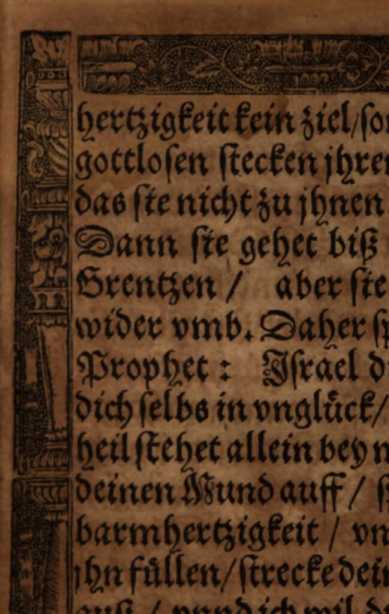 hertzigkeit kein ziel/
gottlosen stecken jhre
das sie nicht zu jhnen
Dann sie gehet biß
Grentzen / aber sie
wider vmb. Daher
Prophet: Israel
dich selbs in vnglück/
heil stehet allein bey
deinen Mund auff /
barmhertzigkeit /
jhn füllen/ strecke